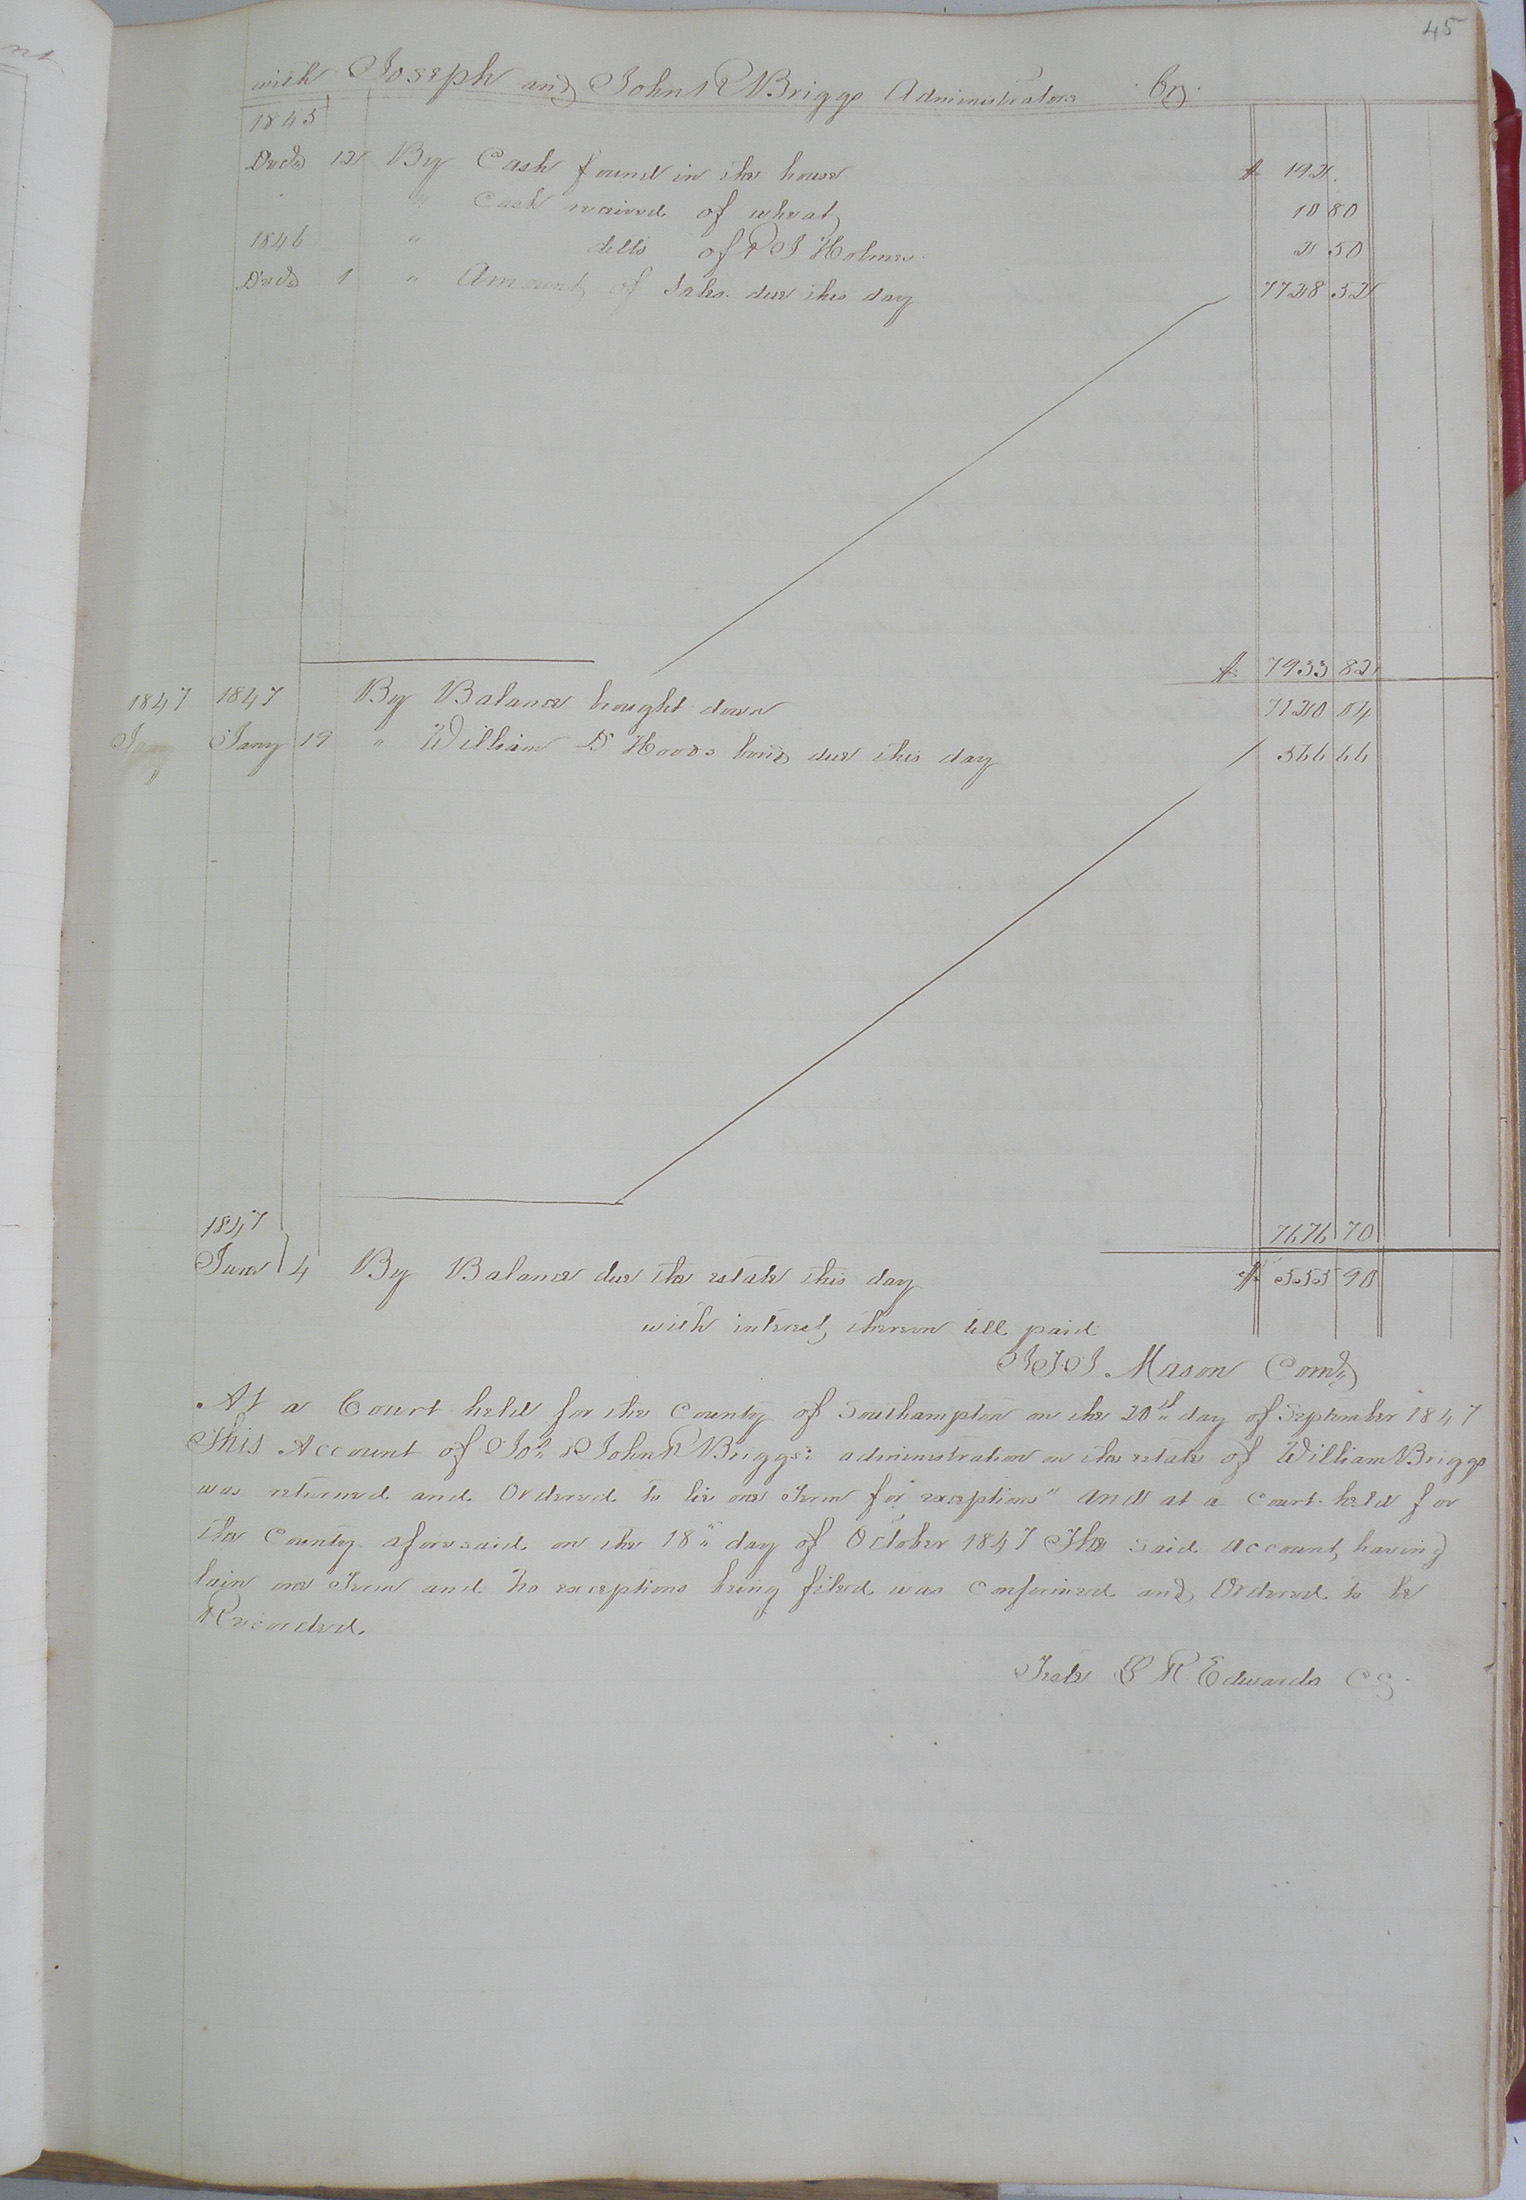 45
with Joseph and John R Briggs Administrators Cr.
1845
Decr 12 By Cash found in the house $ 192.
" Cash received of wheat 10 80
1846 " ditto of R J Holmes 2 50
Decr 1 " Amount of Sales due this day 7728 52
$ 7933 82
1847 1847 By Balance brought down 7120 04
Jany Jany 19 " William D Hoods bond due this day 566 66
"
7676 70
1847
June 4 By Balance due the estate this day $ 555 90
with interest thereon till paid
Mason Comr
At a Court held for the County of Southampton on the 20th day of September 1847
This Account of Jos. & John R Briggs: administration on the estate of William Briggs
was returned and Ordered to lie one Term for exceptions" And at a Court held for
the County aforesaid on the 18th day of October 1847 The said Account, having
lain one Term and no exceptions being filed was confirmed and Ordered to be
Recorded.
Teste L R Edwards CC